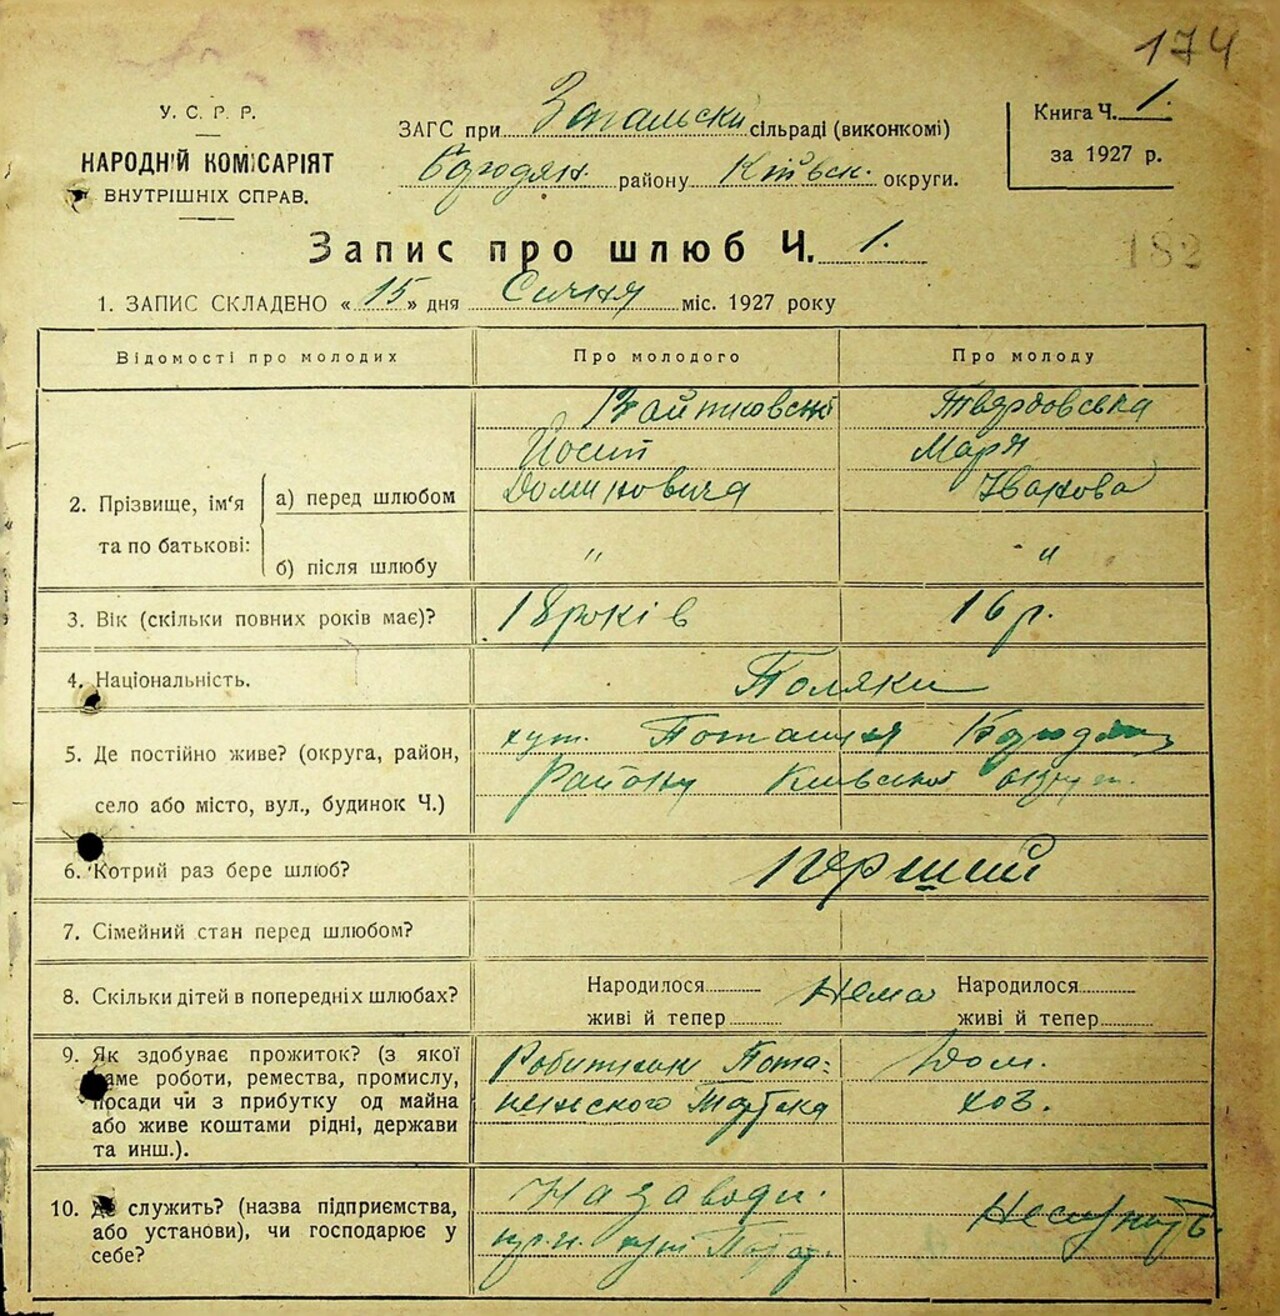 174
У. С. Р. Р.
НАРОДНІЙ КОМІСАРІЯТ
ВНУТРІШНІХ СПРАВ.
ЗАГС при Загальски сільраді (виконкомі)
Бородян. району Київськ. округи.
Книга Ч. 1.
за 1927 р.
Запис про шлюб Ч. 1.
182
1. ЗАПИС СКЛАДЕНО « 15 » дня Січня міс. 1927 року
Відомості про молодих
Про молодого
Про молоду
2. Прізвище, ім'я та по батькові:
а) перед шлюбом
Йосип
Доминовича
Твердовська
Мар'я
Іванова
б) після шлюбу
" "
3. Вік (скільки повних років має)?
18 років
16 р.
4. Національність.
Поляки
5. Де постійно живе? (округа, район,
село або місто, вул., будинок Ч.)
хут. Поташня
Району Київської округ.
6. Котрий раз бере шлюб?
Перший
7. Сімейний стан перед шлюбом?
8. Скільки дітей в попередніх шлюбах?
Народилося
живі й тепер
Нема
Народилося
живі й тепер
9. Як здобуває прожиток? (з якої
саме роботи, ремества, промислу,
посади чи з прибутку од майна
або живе коштами рідні, держави
та инш.).
Робитник
Дом.
хоз.
10. Де служить? (назва підприємства,
або установи), чи господарює у
себе?
На заводи.
хут.
Неслужить.